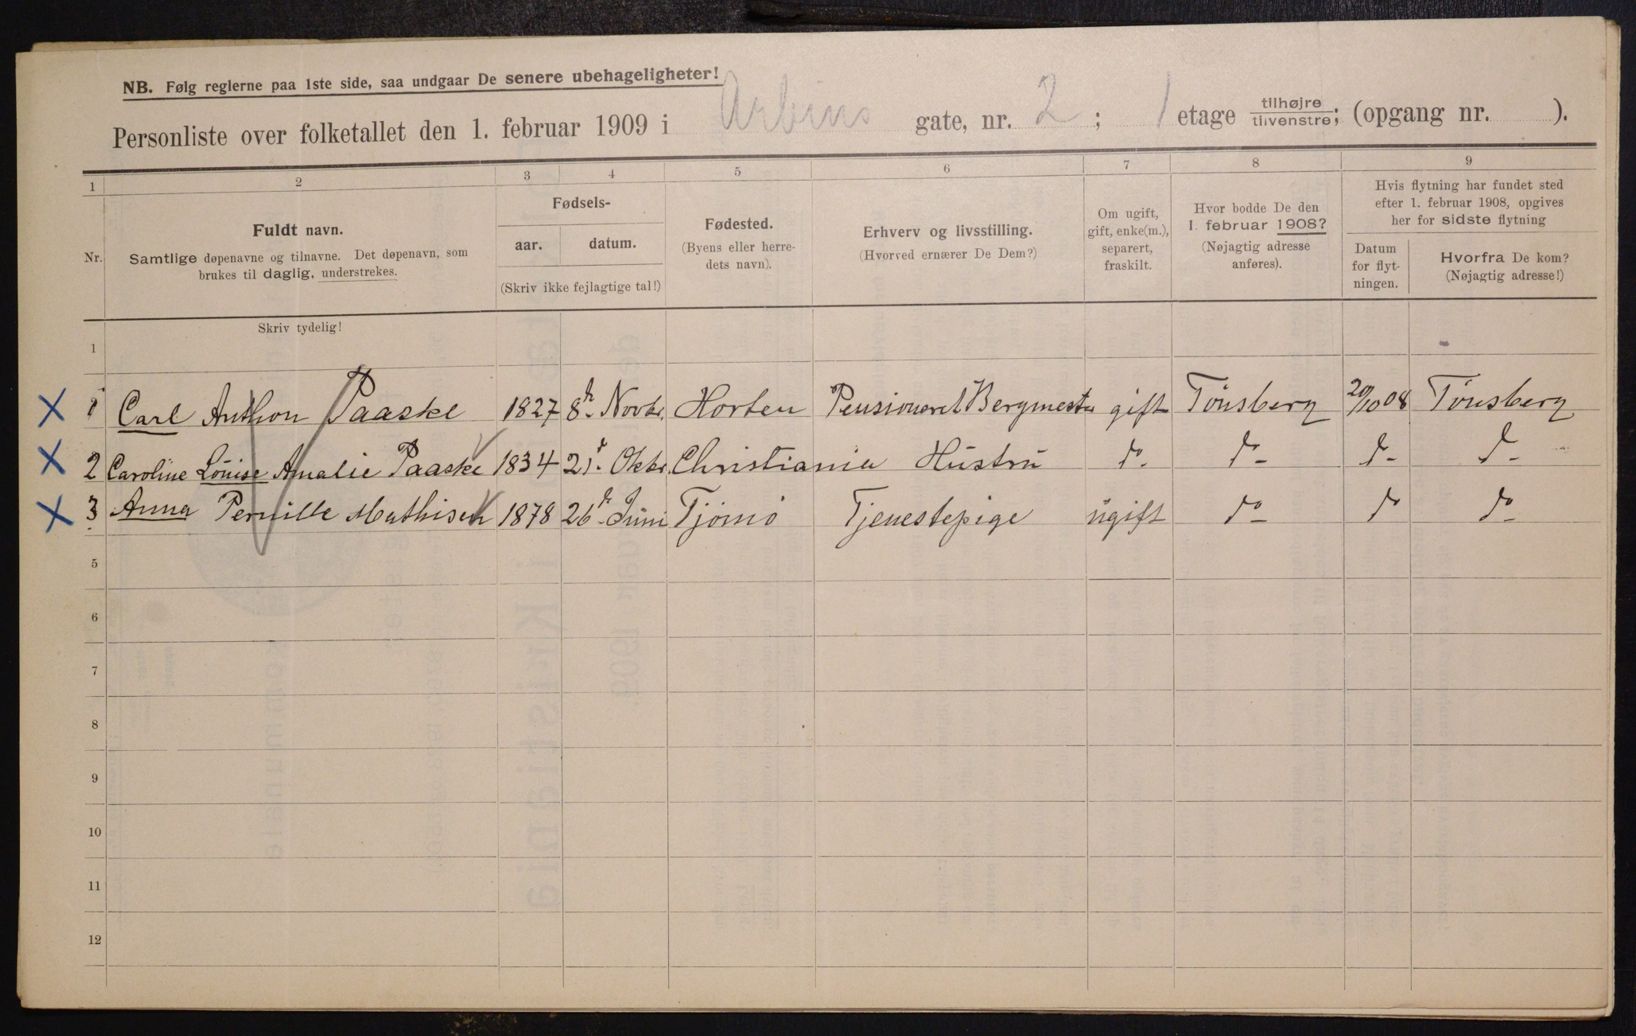 NB. Følg reglerne paa 1ste side, saa undgaar De senere ubehageligheter!
Personliste over folketallet den 1. februar 1909 i Arbins gate, nr. 2; 1 etage tilhøjre tilvenstre; (opgang nr. ).
1 2 3 4 5 6 7 8 9
Nr.
Fuldt navn.
Samtlige døpenavne og tilnavne. Det døpenavn, som
brukes til daglig, understrekes.
Skriv tydelig!
Fødsels-
aar. datum.
(Skriv ikke fejlagtige tal!)
Fødested.
(Byens eller herre-
dets navn).
Erhverv og livsstilling.
(Hvorved ernærer De Dem?)
Om ugift,
gift, enke(m.),
separert,
fraskilt.
Hvor bodde De den
1. februar 1908?
(Nøjagtig adresse
anføres).
Hvis flytning har fundet sted
efter 1. februar 1908, opgives
her for sidste flytning
Datum
for flyt-
ningen.
Hvorfra De kom?
(Nøjagtig adresse!)
1
X 1 Carl Anthon Paaske 1827 8de Novbr. Horten Pensioneret Bergmester gift Tönsberg 20/10 08 Tönsberg
X 2 Caroline Louise Amalie Paaske 1834 21de Oktbr. Christiania Hustru do do do do
X 3 Anna Pernille Mathisen 1878 26de Juni Tjömö Tjenestepige ugift do do do
5
6
7
8
9
10
11
12